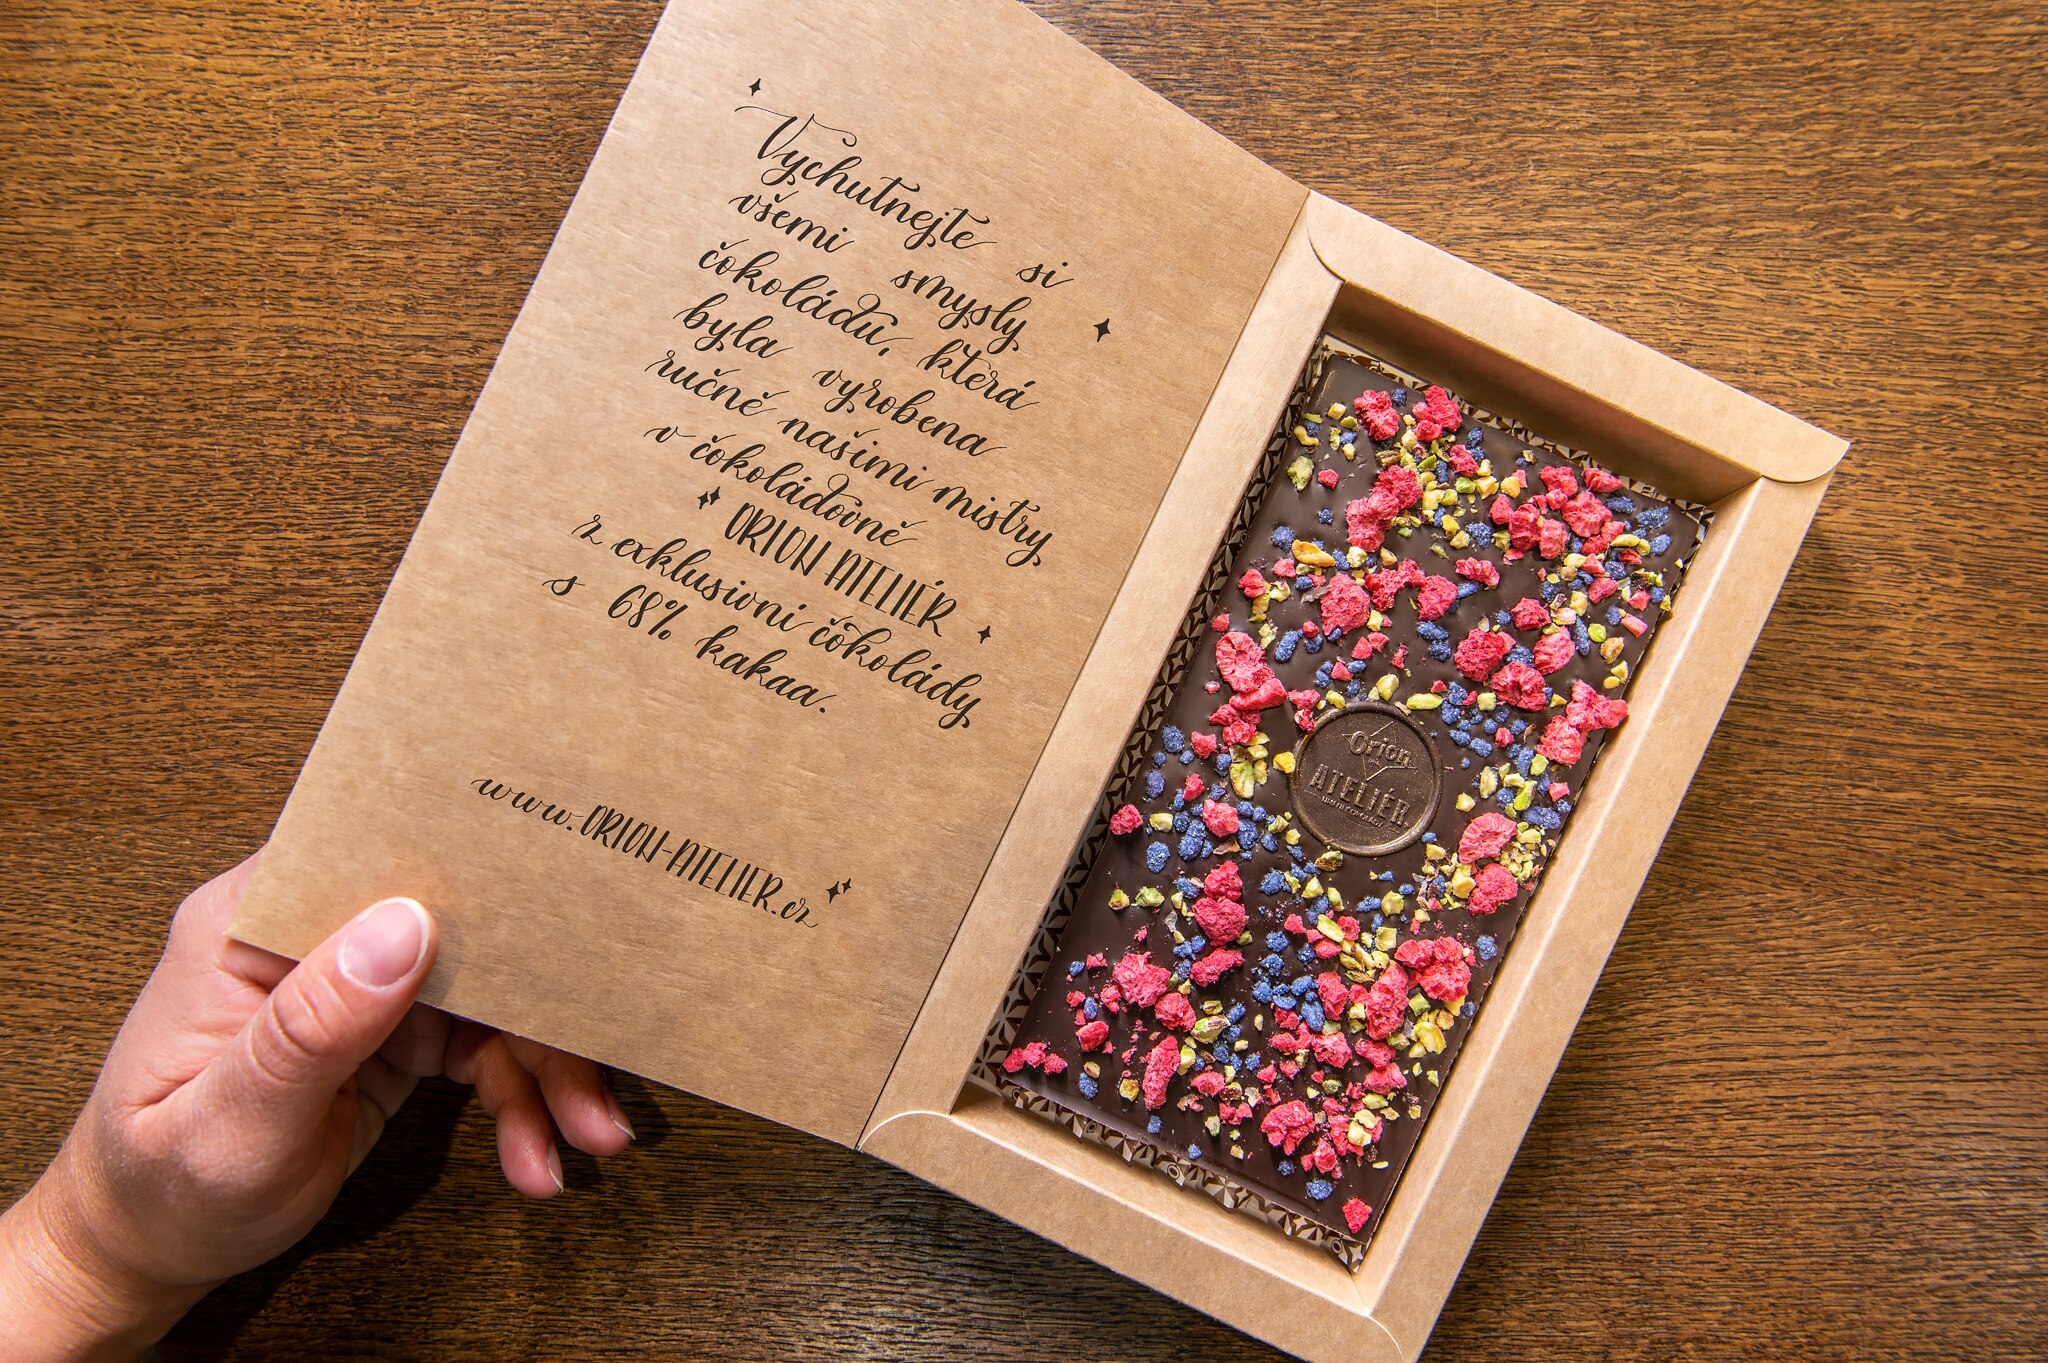 Vychutnejte si
všemi smysly
čokoládu, která
byla vyrobena
ručně našimi mistry
v čokoládovně
ORION ATELIÉR
z exklusivní čokolády
s 68% kakaa.
www.ORION-ATELIER.cz
Orion
ATELIÉR